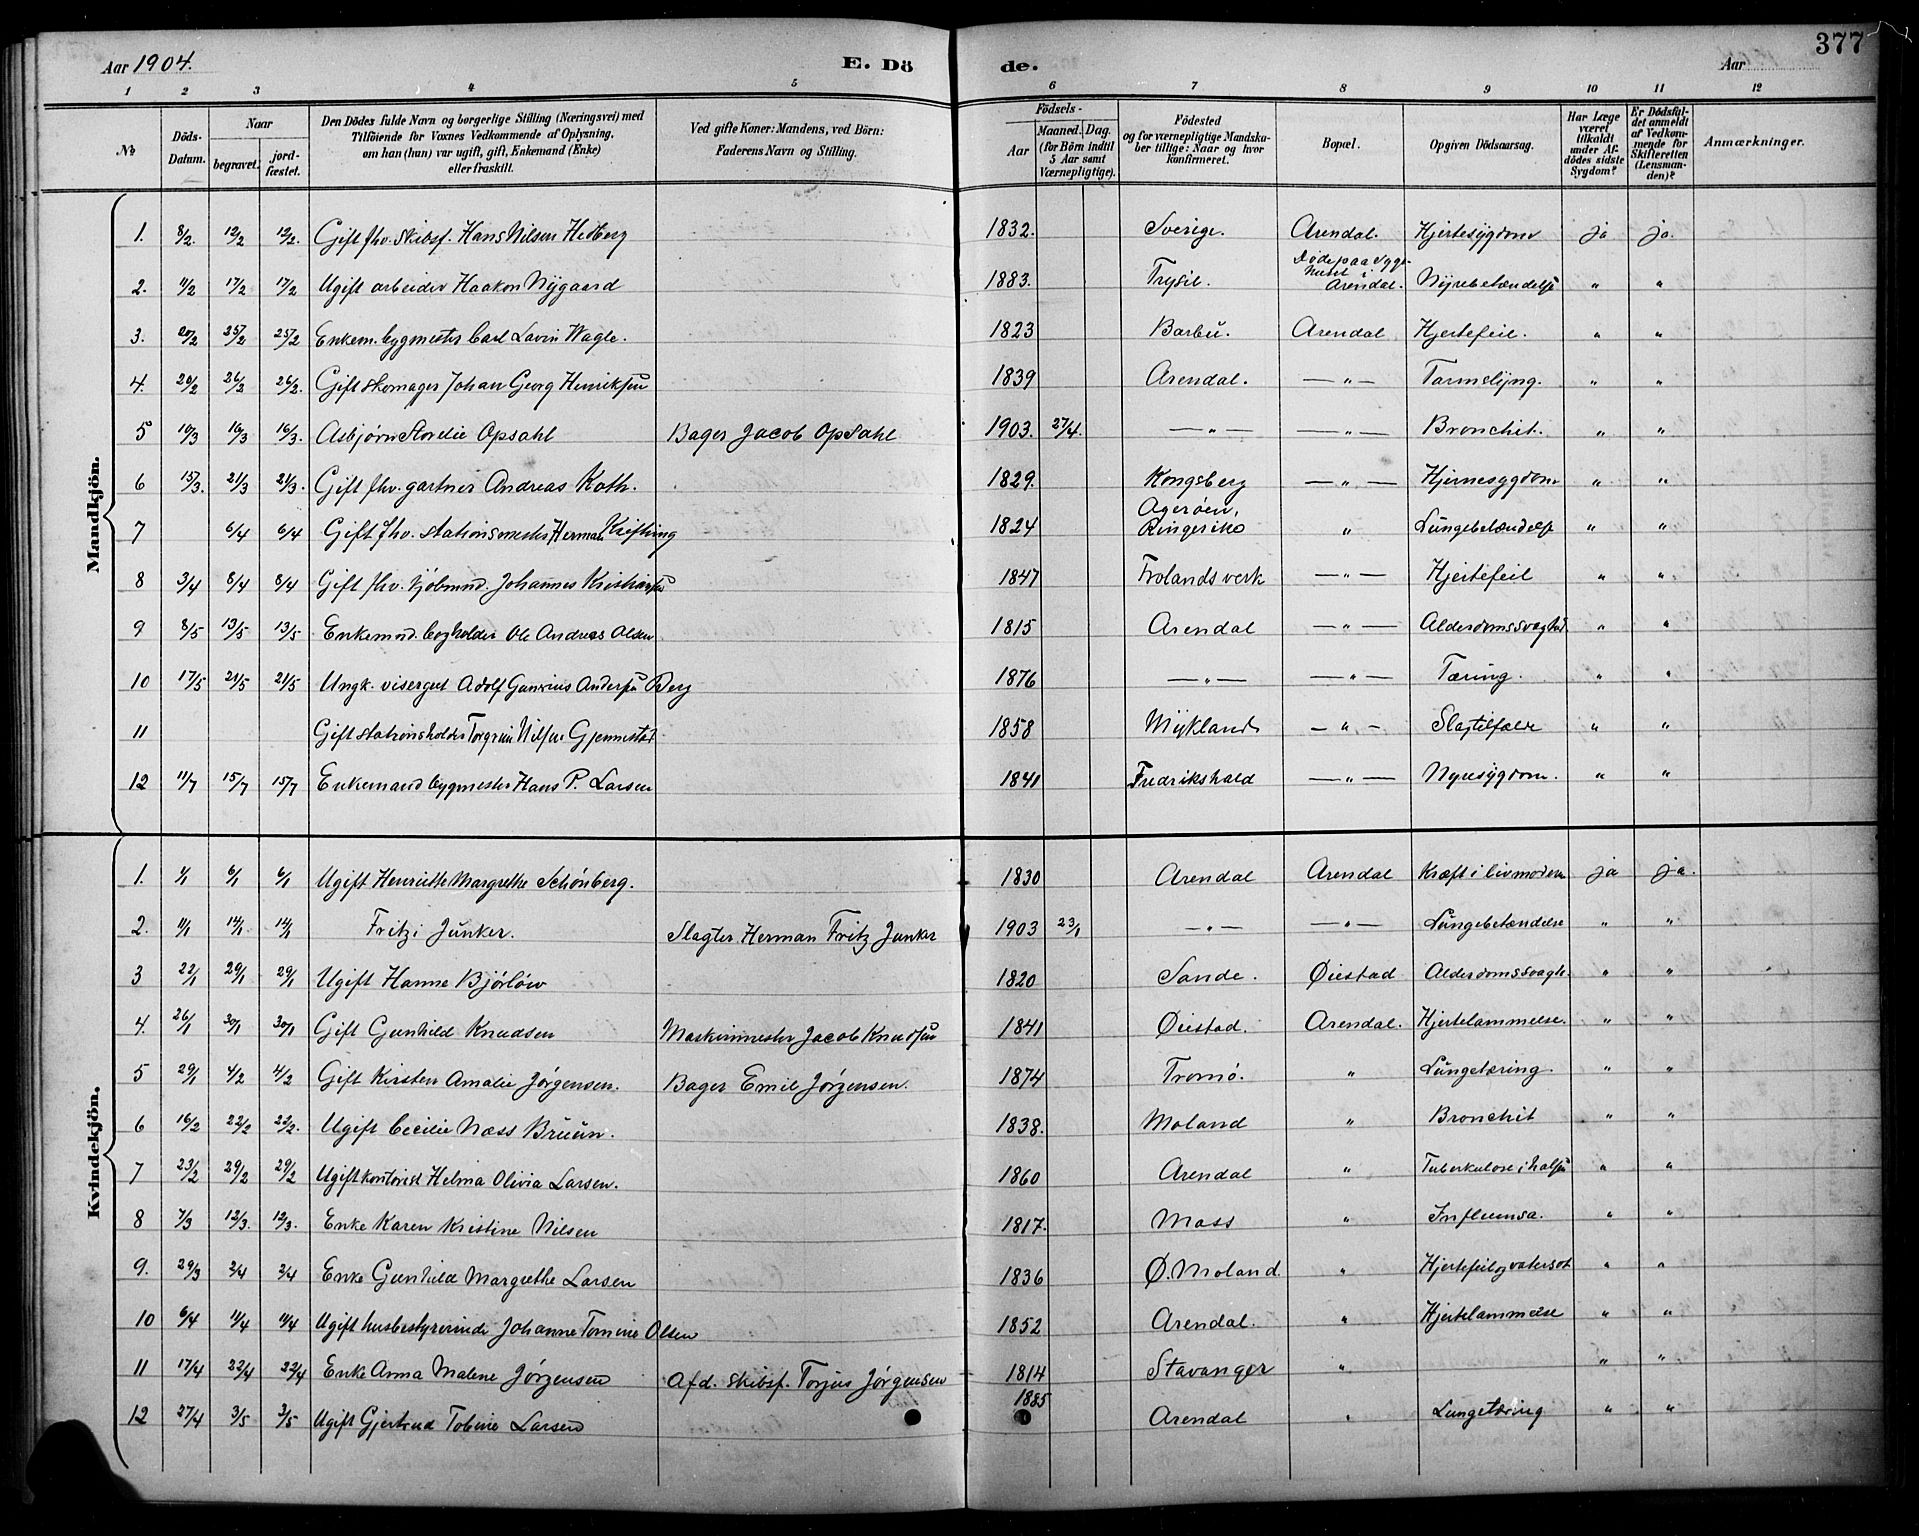 Aar 1904. E. Dö de. Aar 377
1 2 3 4 5 6 7 8 9 10 11 12
No
Döds-Datum.
Naar
begravet.
jordfæstet.
Den Dödes fulde Navn og borgerlige Stilling (Næringsvei) med
Tilföiende for Voxnes Vedkommende af Oplysning,
om han (hun) var ugift, gift, Enkemand (Enke)
eller fraskilt.
Ved gifte Koner: Mandens, ved Börn:
Faderens Navn og Stilling.
Födsels-
Aar
Maaned. Dag.
(for Börn indtil
5 Aar samt
Værnepligtige).
Födested
og for værnepligtige Mandskaber
tillige: Naar og hvor
Konfirmeret.
Bopæl.
Opgiven Dödsaarsag.
Har Læge
været
tilkaldt
under Afdödes
sidste
Sygdom?
Er Dödsfaldet
anmeldt
af Vedkommende
for
Skifteretten
(Lensmanden)?
Anmærkninger.
Mandkjön.
1. 8/2. 12/2 12/2. Gift fhv. Skibsf. Hans Nilsen Hedberg 1832. Sverige. Arendal. Hjertesygdom ja ja.
2. 11/2 17/2 17/2 Ugift arbeider Haakon Nygaard 1883. Trysil. Døde paa Sygehuset i Arendal. Nyrebetændelse " "
3. 20/2 25/2 25/2 Enkem. bygmester Carl Lavin Wagle. 1823 Barbu. Arendal Hjertefeil. " "
4. 20/2 26/2 26/2. Gift skomager Johan Georg Henriksen 1839 Arendal. — " — Tarmslyng. " "
5 10/3 16/3 16/3. Asbjørn Storelie Opsahl Bager Jacob Opsahl 1903. 27/4. — " — — " — Bronchit. " "
6 15/3. 21/3 21/3. Gift fhv. gartner Andreas Koth. 1829. Kongsberg — " — Hjernesygdom " "
7 6/4 6/4 Gift fhv. Stationsmester Herman Kiefting 1824 Agerøen, Ringerike " Lungebetændelse " "
8 3/4 8/4 8/4 Gift fhv. kjöbmnd. Johannes Kristiansen 1847 Frolands verk — " — Hjertefeil " "
9 8/5 13/5 13/5 Enkemnd. bogholder Ole Andreas Olsen 1815 Arendal — " — Alderdomssvaghed " "
10 17/5 21/5 21/5 Ungk. visergut Adolf Gunerius Andersen Berg 1876 — " — — " — Tæring. " "
11 Gift stationsholder Torgrim Nilsen Gjennestad 1858 Mykland — " — Slagtilfælde " "
12 11/7 15/7 15/7 Enkemand bygmester Hans P. Larsen 1841 Fredrikshald — " — Nyresygdom. " "
Kvindekjön.
1. 1/1 6/1 6/1 Ugift Henriette Margrethe Schönberg. 1830 Arendal Arendal Kræft i livmoderen ja ja.
2. 11/1 14/1 14/1 Fritzi Junker. Slagter Herman Fritz Junker 1903 23/1 — " — — " — Lungebetændelse " "
3 22/1 29/1 29/1 Ugift Hanne Bjørløw 1820 Sande. Øiestad Alderdomssvagh. " "
4. 26/1 30/1 30/1 Gift Gunhild Knudsen Maskinmester Jacob Knudsen 1841 Øiestad. Arendal. Hjertelammelse. " "
5 29/1 4/2 4/2 Gift Kirsten Amalie Jørgensen. Bager Emil Jørgensen. 1874 Tromö. " Lungetæring. " "
6 16/2 22/2 22/2. Ugift Cecilie Næss Bruun. 1838. Moland " Bronchit " "
7 23/2 29/2 29/2 Ugift kontorist Helma Olivia Larsen. 1860 Arendal " Tuberkulose i halsen " "
8 7/3 12/3. 12/3. Enke Karen Kristine Nilsen 1817. Moss " Influensa. " "
9. 29/3 2/4 2/4 Enke Gunhild Margrethe Larsen 1836 Ø. Moland. " Hjertefeil og vatersot " "
10 6/4 11/4 11/4 Ugift husbestyrerinde Johanne Tomine Olsen 1852 Arendal. " Hjertelammelse " "
11 17/4 22/4 22/4 Enke Anna Malene Jørgensen Afd. skibsf. Torjus Jørgensen 1814 Stavanger " " "
12 27/4 3/5 3/5 Ugift Gjertrud Tobine Larsen 1885 Arendal " Lungetæring " "